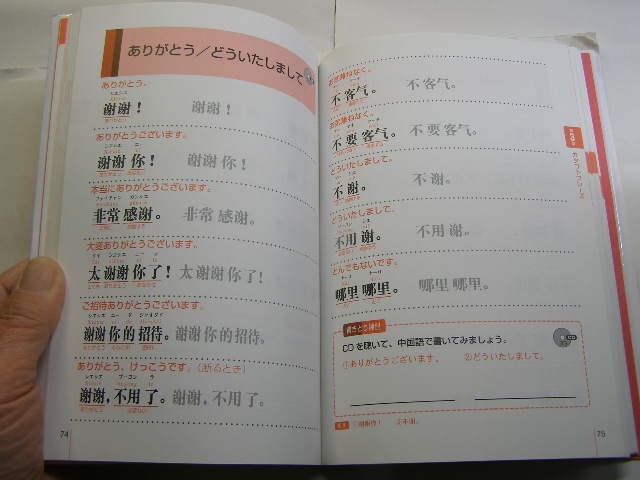 ありがとう／どういたしまして
ありがとう。
シエシエ
谢谢！ 谢谢！
ありがとうございます。
谢谢 你！ 谢谢 你！
本当にありがとうございます。
非常 感谢。 非常 感谢。
大変ありがとうございます。
太 谢谢 你 了！ 太 谢谢 你 了！
ご招待ありがとうございます。
谢谢 你 的 招待。 谢谢 你 的 招待。
ありがとう、けっこうです。（断るとき）
谢谢，不用 了。 谢谢，不用 了。
74
お気兼ねなく。
不 客气。 不 客气。
お気兼ねなく。
不 要 客气。 不 要 客气。
どういたしまして。
不 谢。 不 谢。
どういたしまして。
不用 谢。 不用 谢。
とんでもないです。
哪里 哪里。 哪里 哪里。
CDを聴いて、中国語で書いてみましょう。
①ありがとうございます。 ②どういたしまして。
75